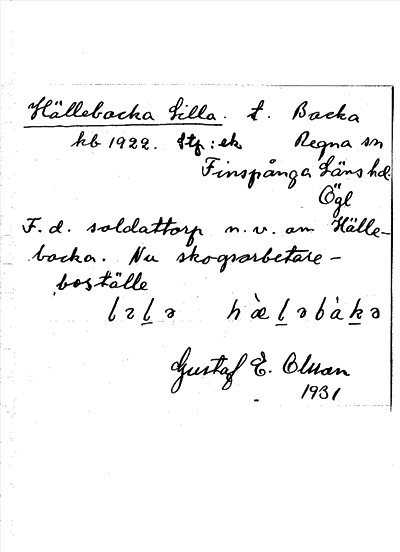 Hällebacka Lilla. t. Backa
kb 1922. Stg: ek Regna sn
Finspånga Läns hd
Ögl
F. d. soldattorp n. v. om Hälle-
backa. Nu skogsarbetare-
boställe
lɛlə hæ̀ləbàkə
Gustaf E. Olsson
1931